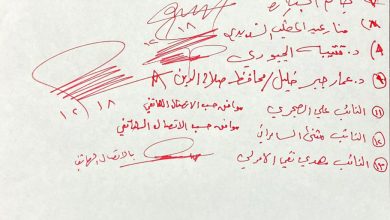 منار عبد المطلب السديري
١٨
د. قتيبة الجبوري
د. عمار جبر خليل / محافظ صلاح الدين
١٢/١٨
النائب علي الصجري موافق حسب الاتصال الهاتفي
النائب مثنى السامرائي موافق حسب الاتصال الهاتفي
النائب مهدي تقي الامرلي بالاتصال الهاتفي